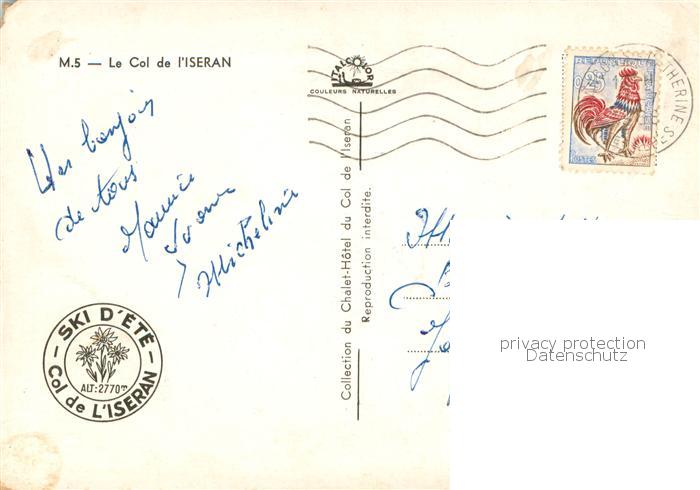 M.5 — Le Col de l'ISERAN
ITALCOLOR
COULEURS NATURELLES
Un bonjour
de tous
Maurice
Yvonne
Micheline
SKI D'ÉTÉ
ALT: 2770m
Col de L'ISERAN
Collection du Chalet-Hôtel du Col de l'Iseran
Reproduction interdite.
POSTES
privacy protection
Datenschutz